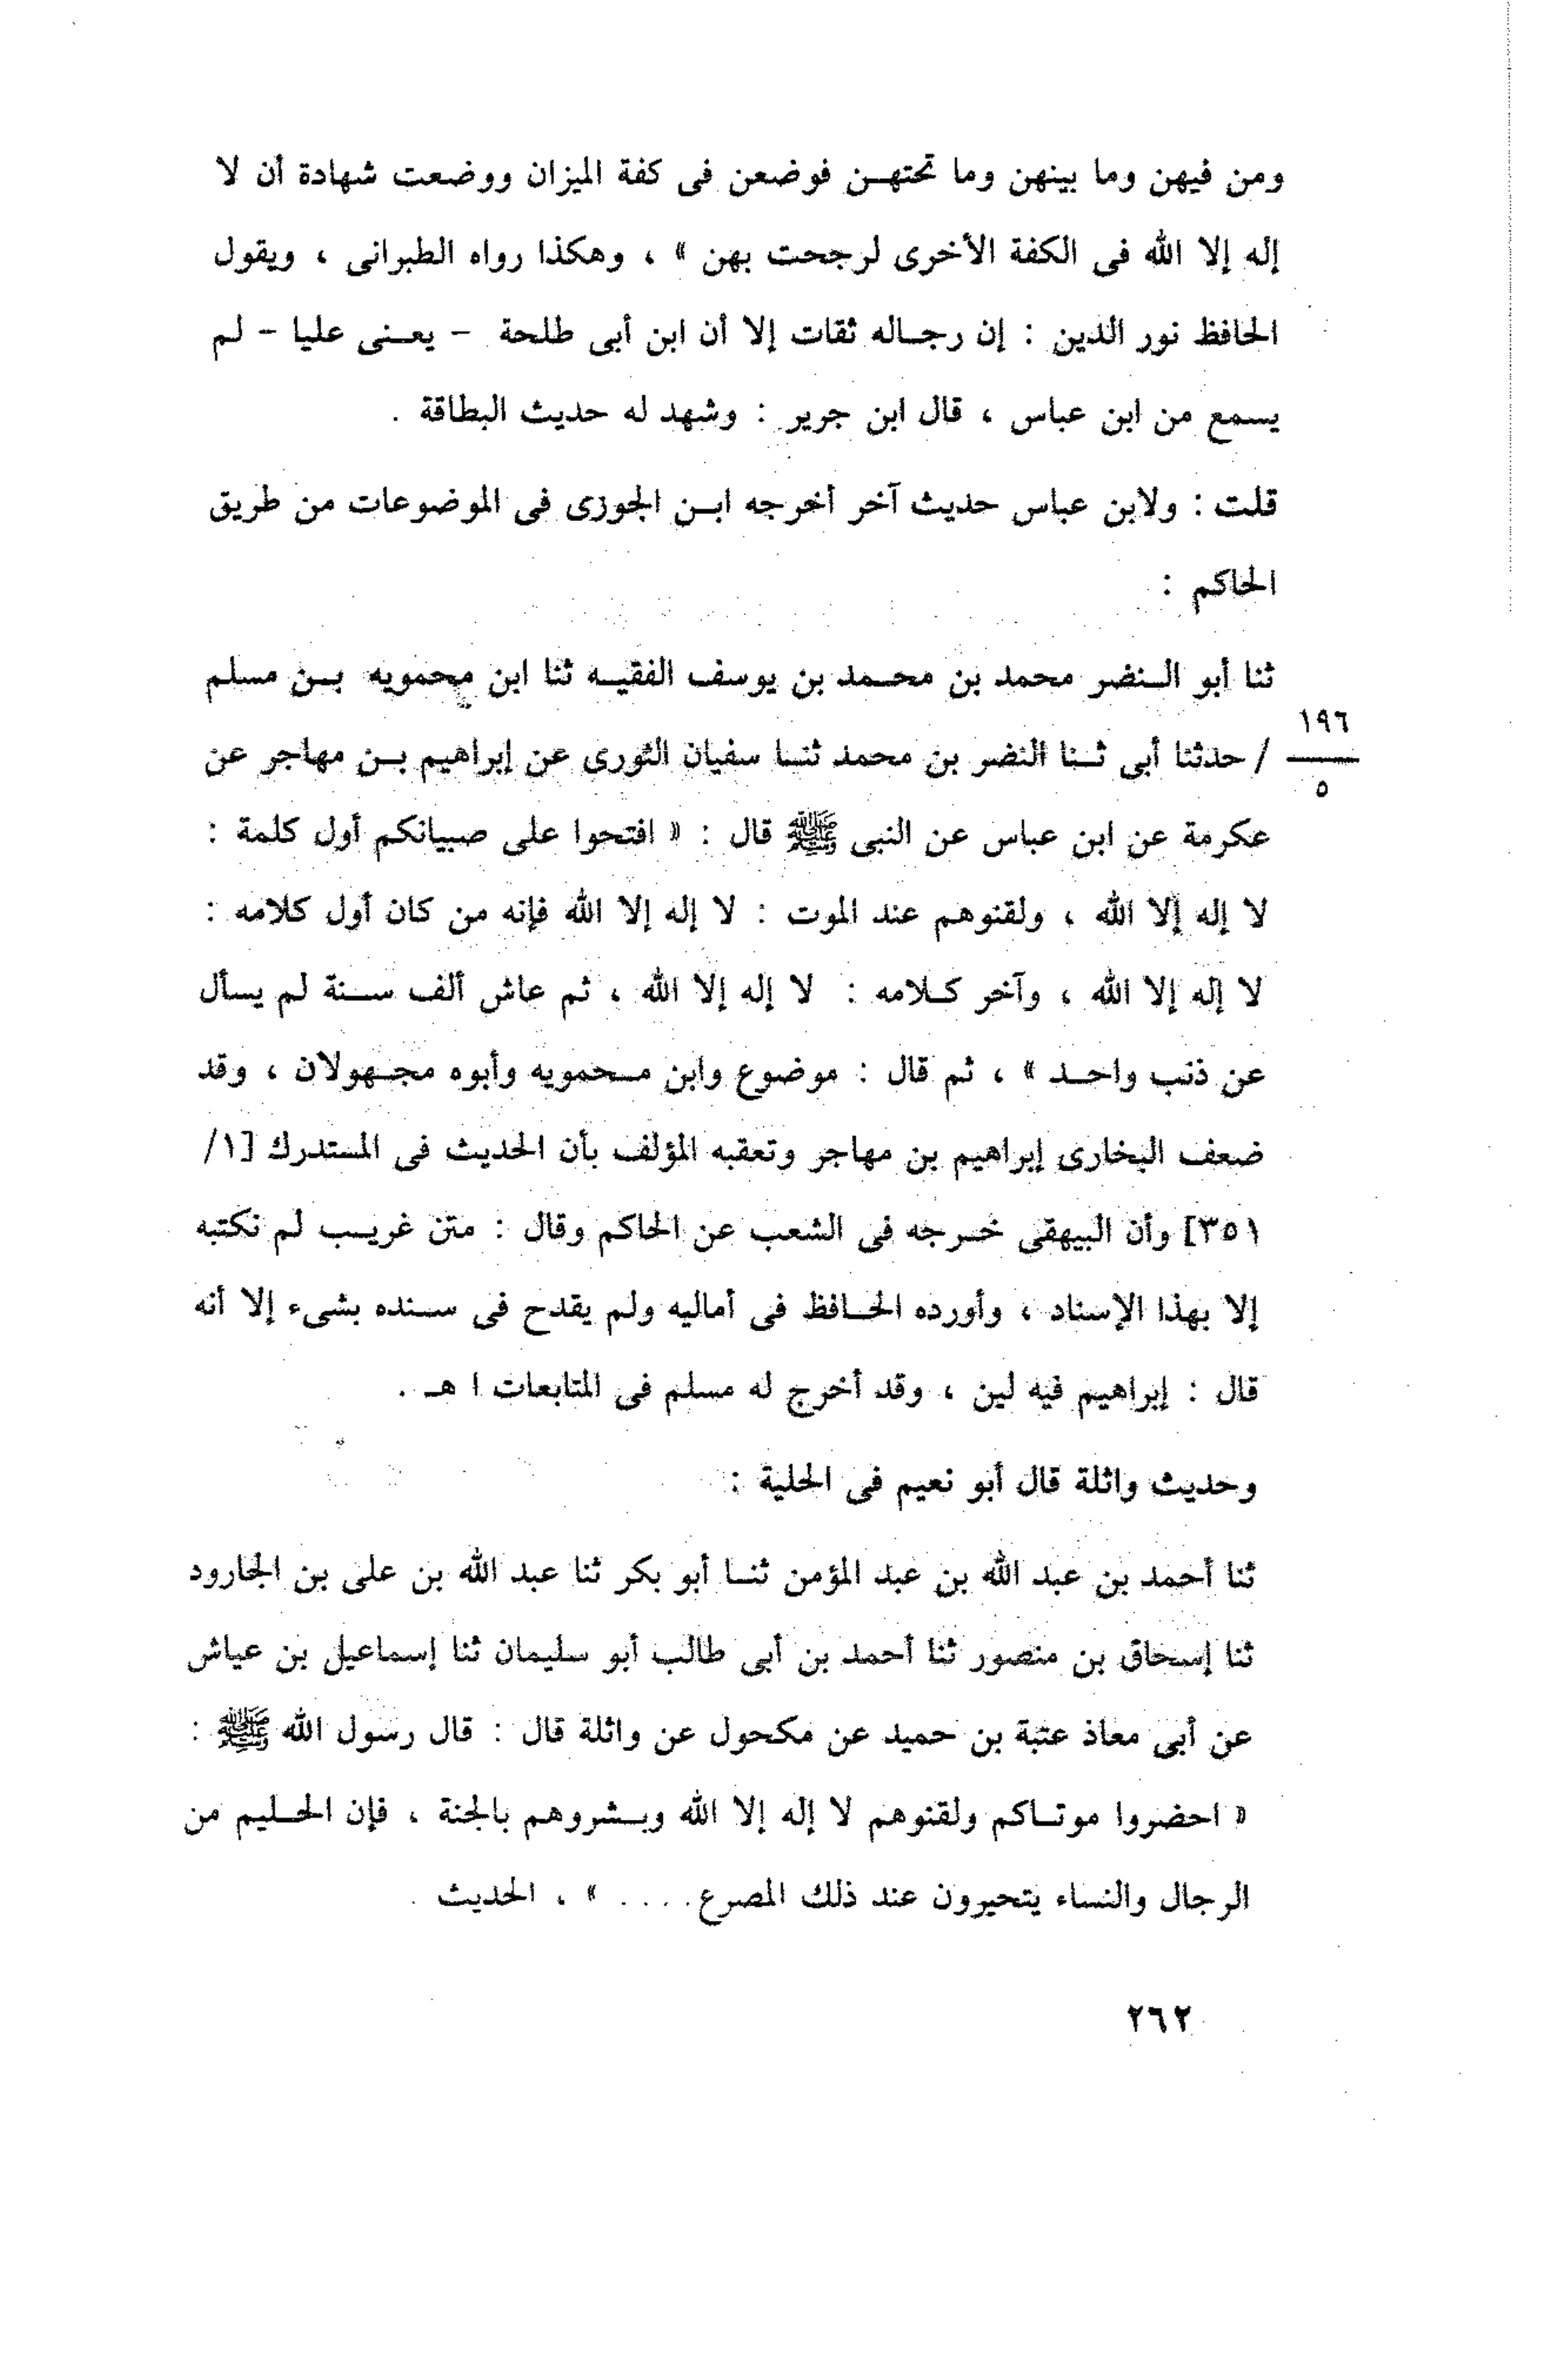 ومن فيهن وما بينهن وما تحتهـن فوضعن فى كفة الميزان ووضعت شهادة أن لا
إله إلا الله فى الكفة الأخرى لرجحت بهن » ، وهكذا رواه الطبرانى ، ويقول
الحافظ نور الدين : إن رجـاله ثقات إلا أن ابن أبى طلحة - يعـنى عليا - لم
يسمع من ابن عباس ، قال ابن جرير : وشهد له حديث البطاقة .
قلت : ولابن عباس حديث آخر أخرجه ابـن الجوزى فى الموضوعات من طريق
الحاكم :
ثنا أبو الـنضر محمد بن محـمد بن يوسف الفقيـه ثنا ابن محمويه بـن مسلم
١٩٦
/ حدثنا أبى ثـنا النضر بن محمد ثنـا سفيان الثورى عن إبراهيم بـن مهاجر عن
٥
عكرمة عن ابن عباس عن النبى ﷺ قال : « افتحوا على صبيانكم أول كلمة :
لا إله إلا الله ، ولقنوهم عند الموت : لا إله إلا الله فإنه من كان أول كلامه :
لا إله إلا الله ، وآخر كـلامه : لا إله إلا الله ، ثم عاش ألف سـنة لم يسأل
عن ذنب واحـد » ، ثم قال : موضوع وابن مـحمويه وأبوه مجـهولان ، وقد
ضعف البخارى إبراهيم بن مهاجر وتعقبه المؤلف بأن الحديث فى المستدرك [١/
٣٥١] وأن البيهقى خـرجه فى الشعب عن الحاكم وقال : متن غريـب لم نكتبه
إلا بهذا الإسناد ، وأورده الحـافظ فى أماليه ولم يقدح فى سـنده بشىء إلا أنه
قال : إبراهيم فيه لين ، وقد أخرج له مسلم فى المتابعات ا هـ .
وحديث واثلة قال أبو نعيم فى الحلية :
ثنا أحمد بن عبد الله بن عبد المؤمن ثنـا أبو بكر ثنا عبد الله بن على بن الجارود
ثنا إسحاق بن منصور ثنا أحمد بن أبى طالب أبو سليمان ثنا إسماعيل بن عياش
عن أبى معاذ عتبة بن حميد عن مكحول عن واثلة قال : قال رسول الله ﷺ :
« احضروا موتـاكم ولقنوهم لا إله إلا الله وبـشروهم بالجنة ، فإن الحـليم من
الرجال والنساء يتحيرون عند ذلك المصرع.... » ، الحديث .
٢٦٢